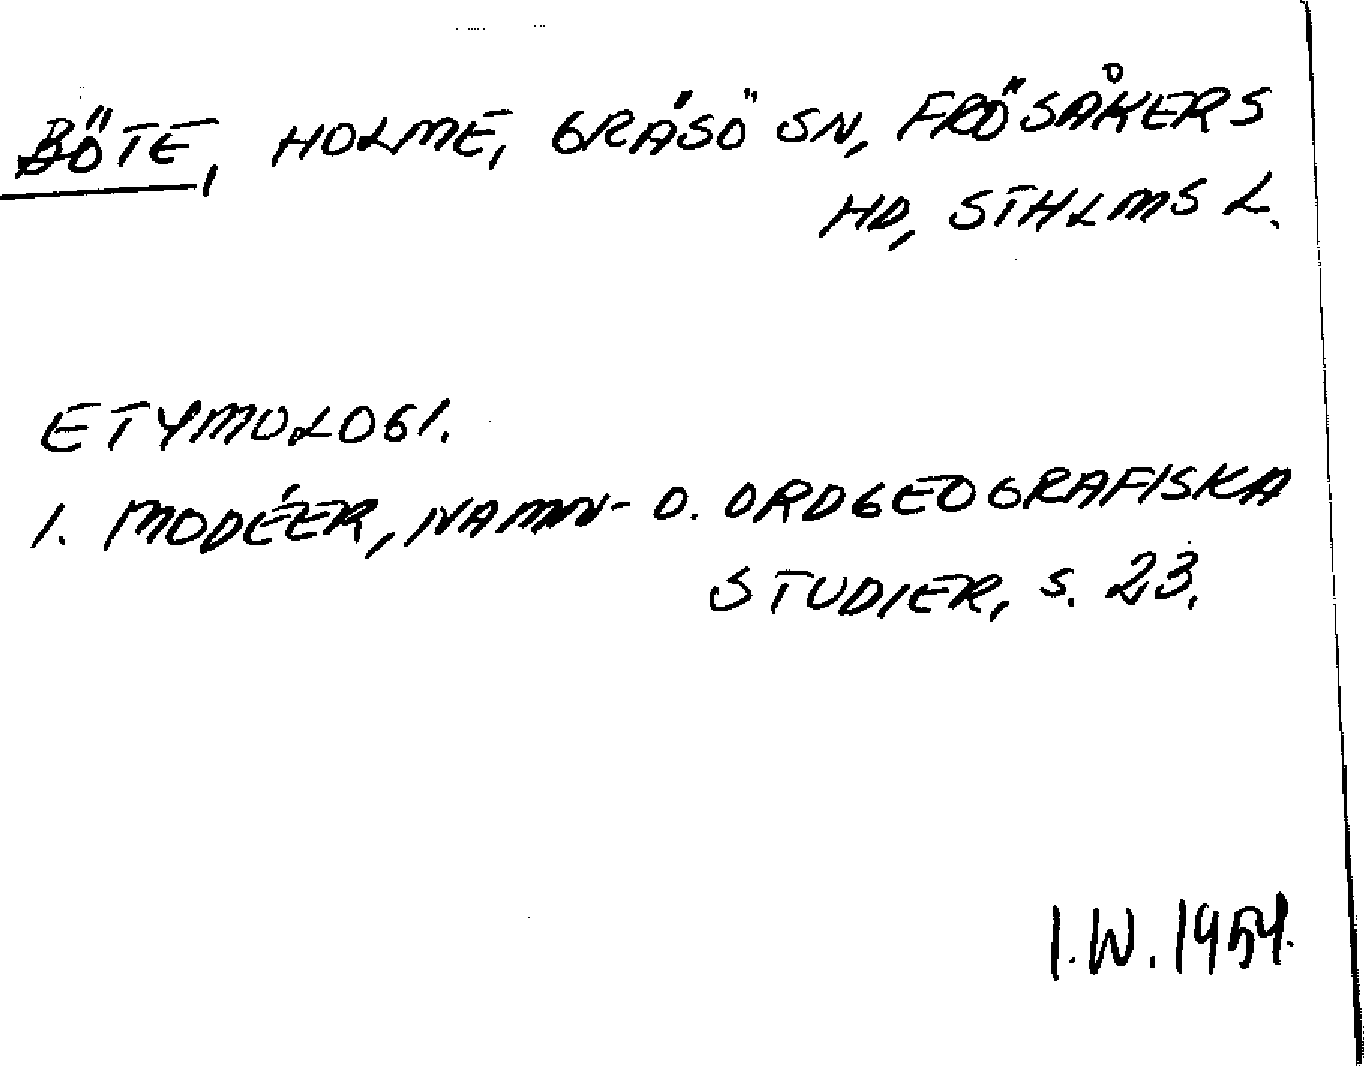 BÖTE, HOLME, GRÄSÖ SN, FRÖSÅKERS
HD, STHLMS L.
ETYMOLOGI.
1. MODÉER, NAMN- O. ORDGEOGRAFISKA
STUDIER, S. 23.
I.W. 1954.